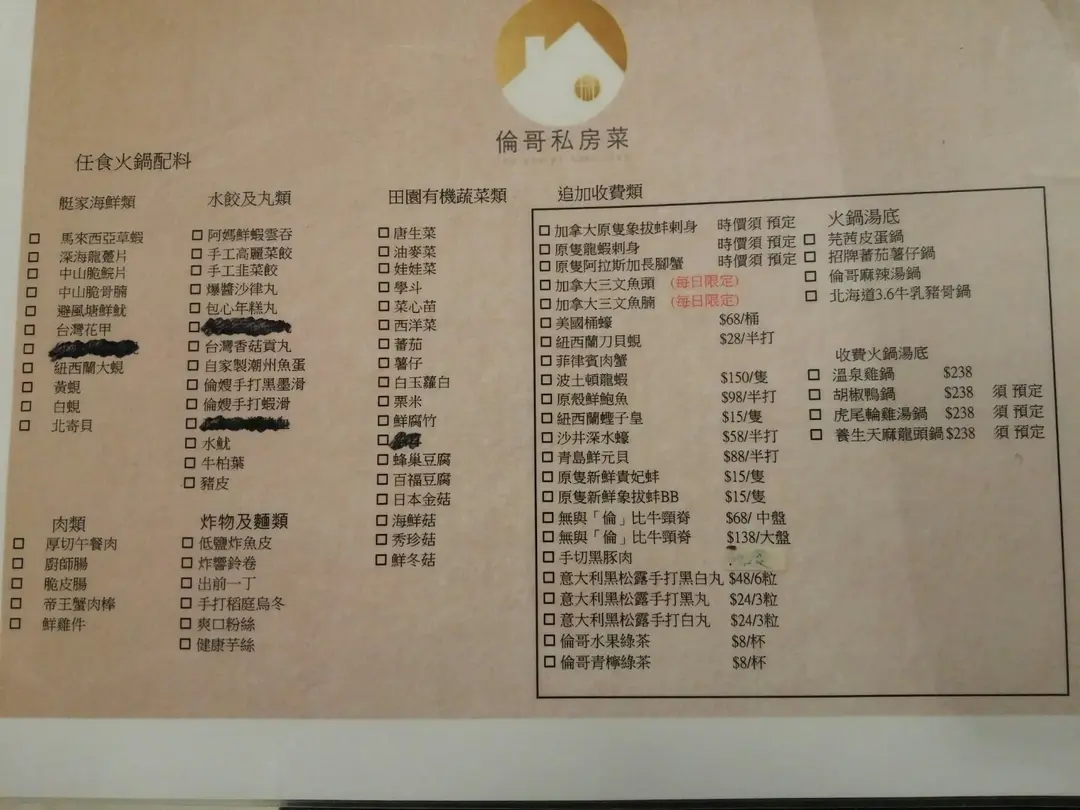 倫哥私房菜
任食火鍋配料
艇家海鮮類
馬來西亞草蝦
深海龍躉片
中山脆鯇片
中山脆骨腩
避風塘鮮魷
台灣花甲
紐西蘭大蜆
黃蜆
白蜆
北寄貝
肉類
厚切午餐肉
廚師腸
脆皮腸
帝王蟹肉棒
鮮雞件
水餃及丸類
阿媽鮮蝦雲吞
手工高麗菜餃
手工韭菜餃
爆醬沙律丸
包心年糕丸
台灣香菇貢丸
自家製潮州魚蛋
倫嫂手打黑墨滑
倫嫂手打蝦滑
水魷
牛柏葉
豬皮
炸物及麵類
低鹽炸魚皮
炸響鈴卷
出前一丁
手打稻庭烏冬
爽口粉絲
健康芋絲
田園有機蔬菜類
唐生菜
油麥菜
娃娃菜
學斗
菜心苗
西洋菜
蕃茄
薯仔
白玉蘿白
栗米
鮮腐竹
蜂巢豆腐
百福豆腐
日本金菇
海鮮菇
秀珍菇
鮮冬菇
追加收費類
加拿大原隻象拔蚌刺身 時價須 預定
原隻龍蝦刺身 時價須 預定
原隻阿拉斯加長腳蟹 時價須 預定
加拿大三文魚頭 (每日限定)
加拿大三文魚腩 (每日限定)
美國桶蠔 $68/桶
紐西蘭刀貝蜆 $28/半打
菲律賓肉蟹
波士頓龍蝦 $150/隻
原殼鮮鮑魚 $98/半打
紐西蘭蟶子皇 $15/隻
沙井深水蠔 $58/半打
青島鮮元貝 $88/半打
原隻新鮮貴妃蚌 $15/隻
原隻新鮮象拔蚌BB $15/隻
無與「倫」比牛頸脊 $68/ 中盤
無與「倫」比牛頸脊 $138/大盤
手切黑豚肉
意大利黑松露手打黑白丸 $48/6粒
意大利黑松露手打黑丸 $24/3粒
意大利黑松露手打白丸 $24/3粒
倫哥水果綠茶 $8/杯
倫哥青檸綠茶 $8/杯
火鍋湯底
芫茜皮蛋鍋
招牌蕃茄薯仔鍋
倫哥麻辣湯鍋
北海道3.6牛乳豬骨鍋
收費火鍋湯底
溫泉雞鍋 $238
胡椒鴨鍋 $238 須 預定
虎尾輪雞湯鍋 $238 須 預定
養生天麻龍頭鍋 $238 須 預定